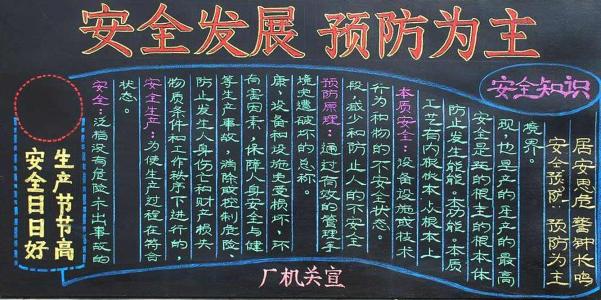 安全发展 预防为主
安全知识
居安思危 警钟长鸣
安全预防 预防为主
境界。
现,也是产的生产的最高
安全是五的根主的根本体
防止发生能能。本功能。本质
工艺有内根伙本占根本上
本质安全:设备设施或技术
行为和物的不安全状态。
段,减少和防止人的不安全
预防原理:通过有效的管理手
境免遭破坏的总称。
康,设备和设施免受损坏,环
向害因素,保障人身安全与健
等生产事故,消除或控制危险、
防止发生人身伤亡和财产损失
物质条件和工作秩序下进行的,
安全生产:为使生产过程在符合
状态。
安全:泛指没有危险未出事故的
生产节节高
安全日日好
厂机关宣